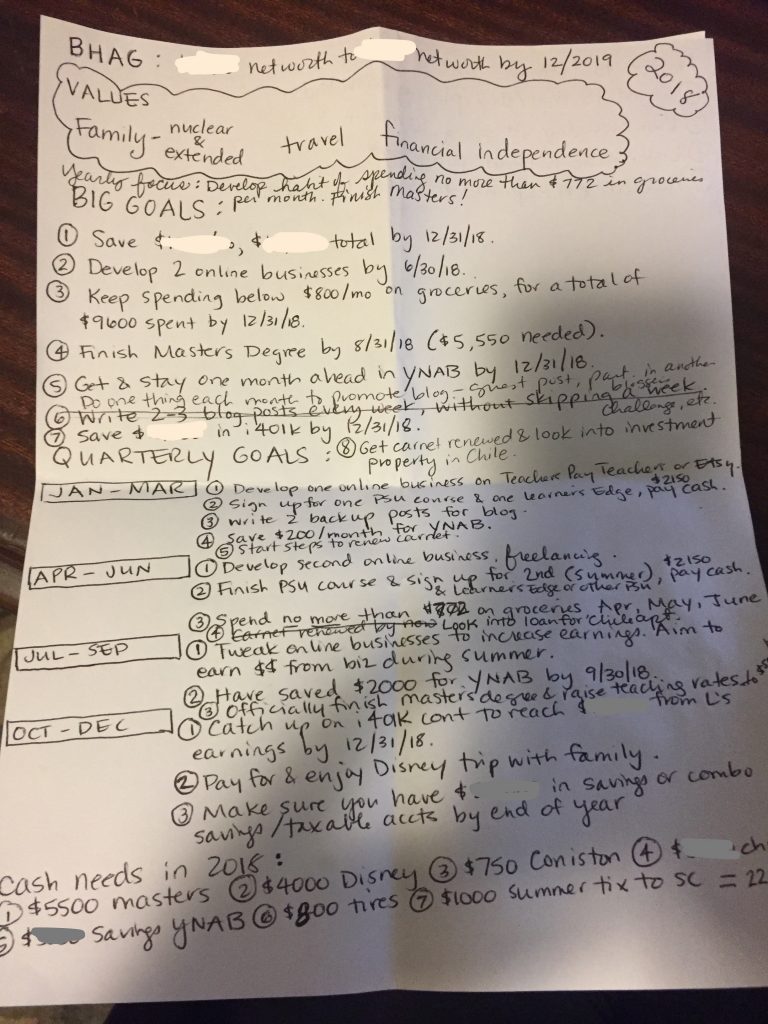 BHAG: networth to networth by 12/2019
2018
VALUES
Family - nuclear & extended travel financial independence
Yearly focus: Develop habit of spending no more than $772 in groceries
per month. Finish Masters!
BIG GOALS:
① Save $ , $ total by 12/31/18.
② Develop 2 online businesses by 6/30/18.
③ Keep spending below $800/mo on groceries, for a total of
$9600 spent by 12/31/18.
④ Finish Masters Degree by 8/31/18 ($5,550 needed).
⑤ Get & stay one month ahead in YNAB by 12/31/18.
Do one thing each month to promote blog - guest post, part. in another
blogger challenge, etc.
⑥ Write 2-3 blog posts every week, without skipping a week.
⑦ Save $ in i401k by 12/31/18.
QUARTERLY GOALS: ⑧ Get carnet renewed & look into investment
property in Chile.
JAN-MAR ① Develop one online business on Teachers Pay Teachers or Etsy.
② Sign up for one PSU course & one Learners Edge, $2150 pay cash.
③ Write 2 backup posts for blog.
④ Save $200/month for YNAB.
⑤ Start steps to renew carnet.
APR-JUN ① Develop second online business, freelancing.
② Finish PSU course & sign up for 2nd (summer), $2150 pay cash.
& Learners Edge or other PSU
③ Spend no more than on groceries Apr, May, June
④ Carnet renewed by now Look into loan for Chile apt.
JUL-SEP ① Tweak online businesses to increase earnings. Aim to
earn $$ from biz during summer.
② Have saved $2000 for YNAB by 9/30/18.
③ Officially finish masters degree & raise teaching rates to
OCT-DEC ① Catch up on i401k cont to reach $ from L's
earnings by 12/31/18.
② Pay for & enjoy Disney trip with family.
③ Make sure you have $ in savings or combo
savings/taxable accts by end of year
Cash needs in 2018:
① $5500 masters ② $4000 Disney ③ $750 Coniston ④ $ ch
⑤ $ savings YNAB ⑥ $800 tires ⑦ $1000 summer tix to SC = 22